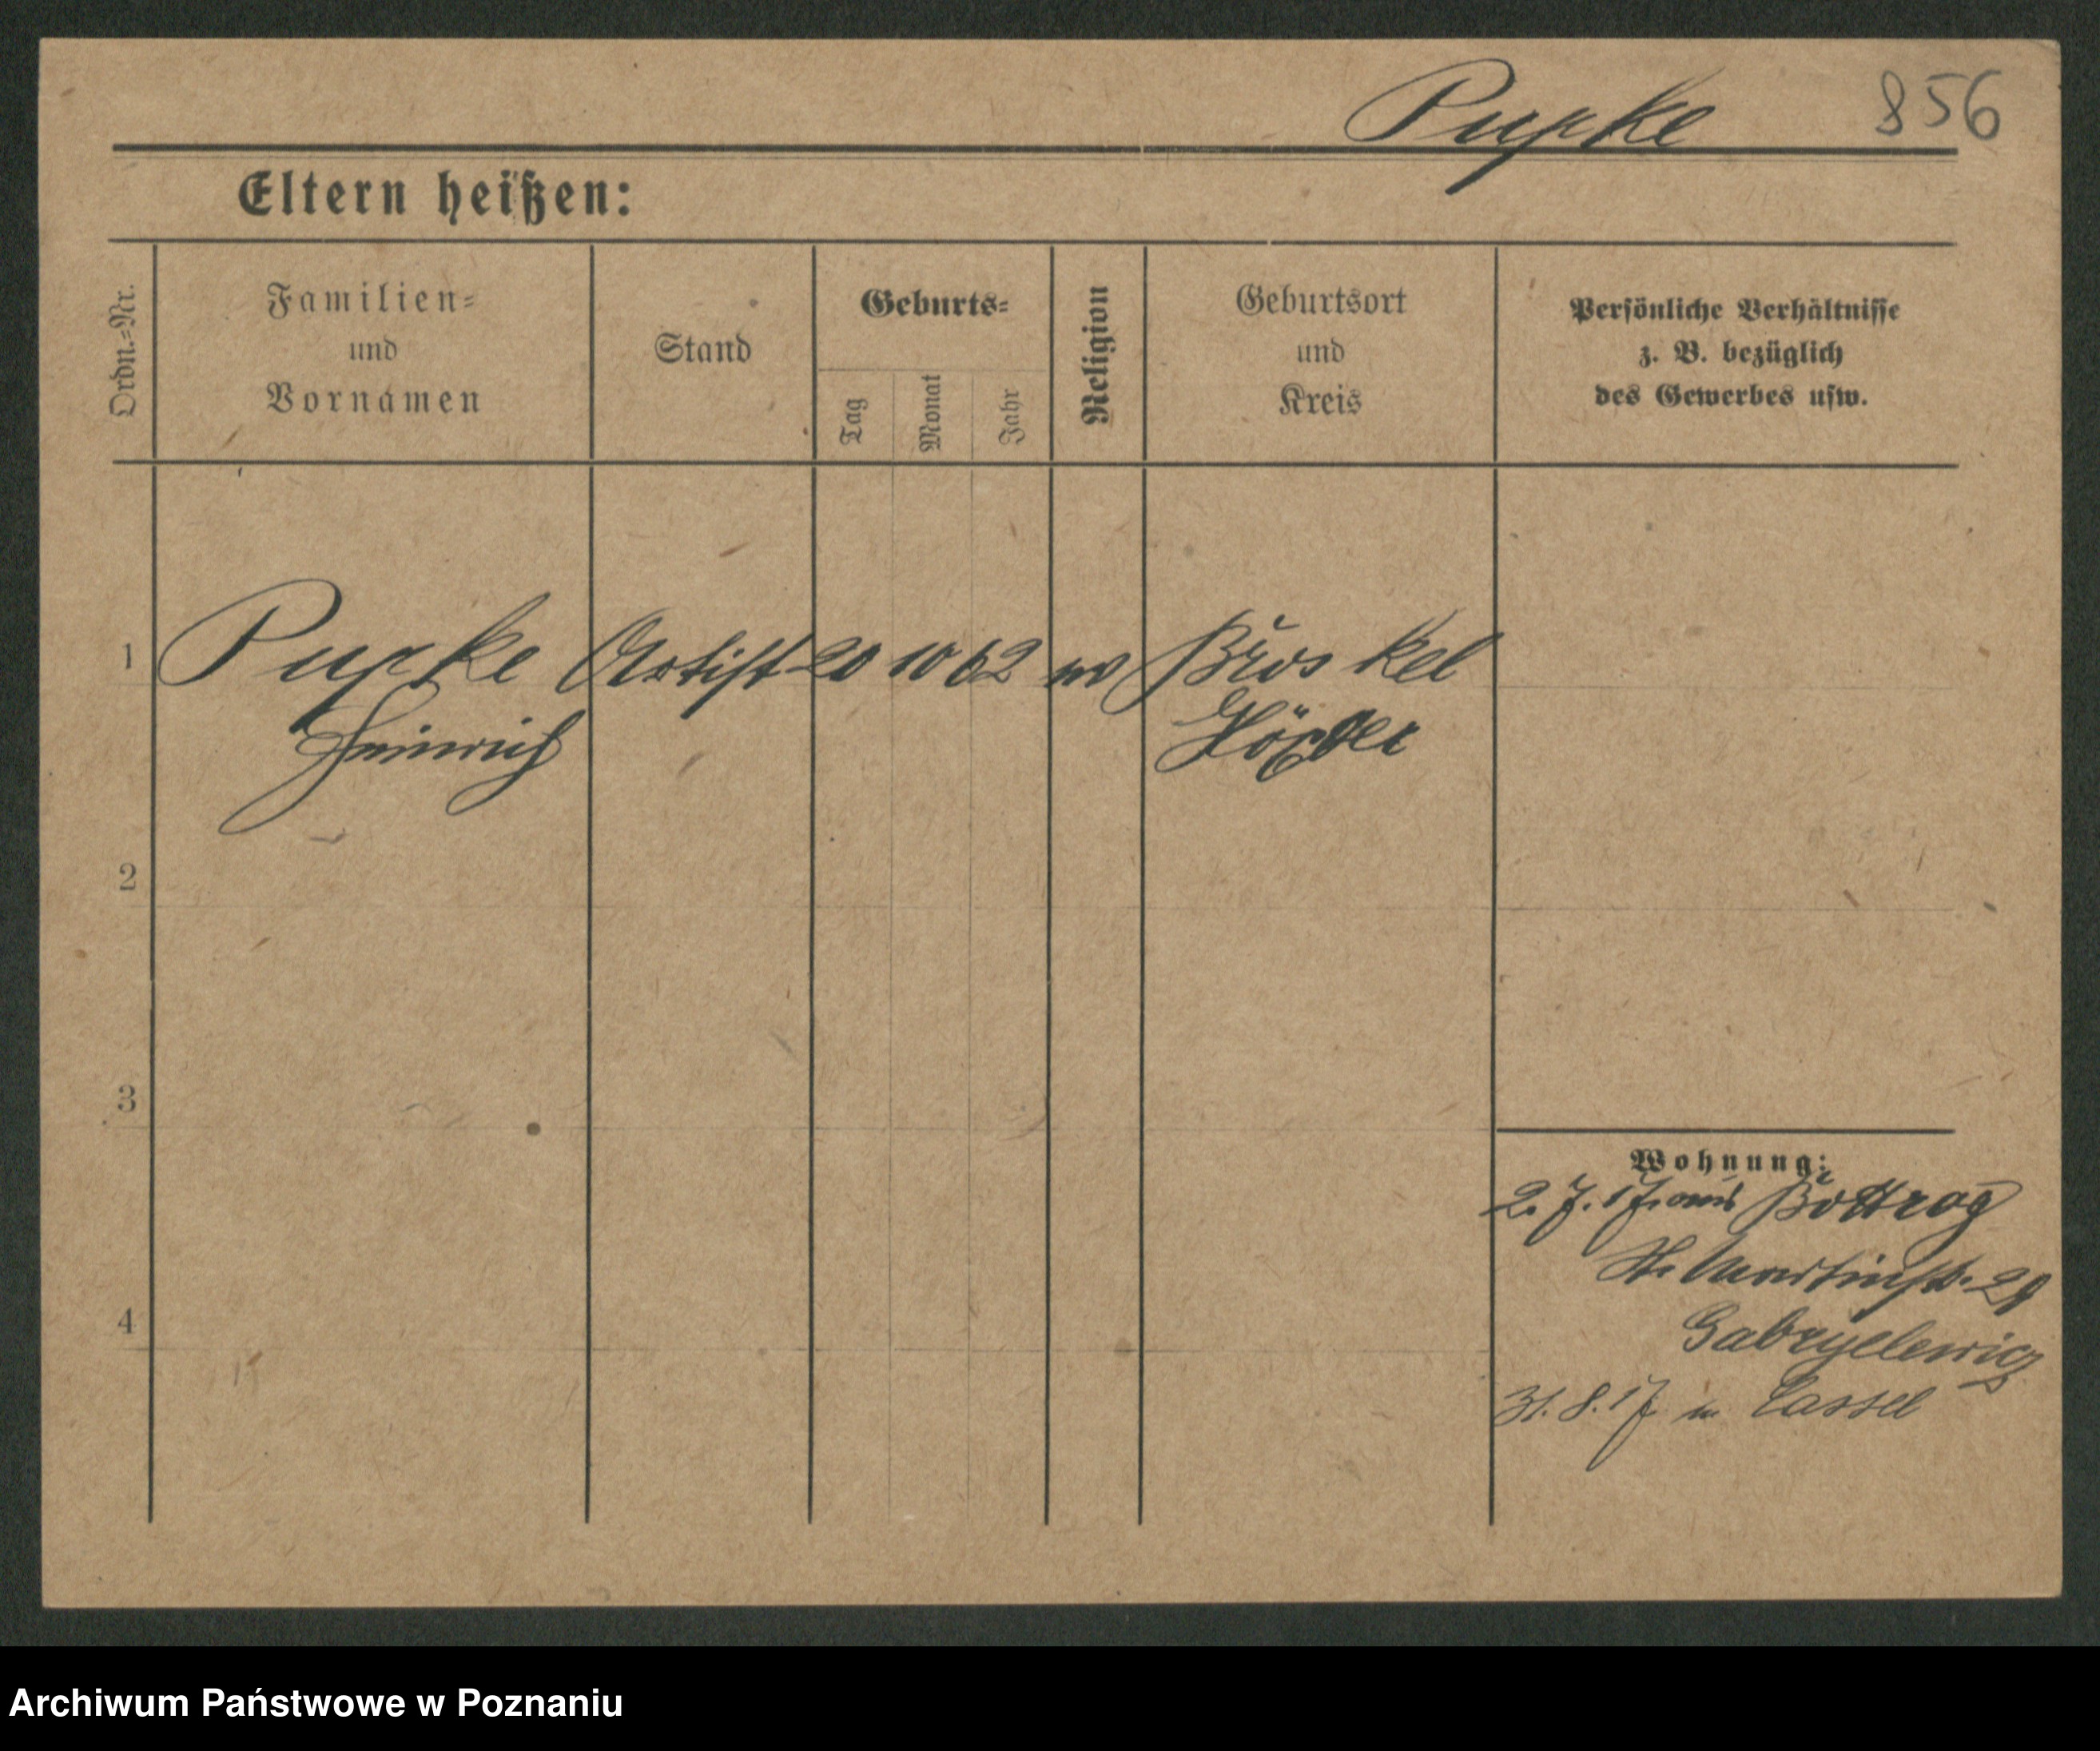 Pupke 856
Eltern heißen:
Ordn.=Nr.
Familien=
und
Vornamen
Stand
Geburts=
Tag
Monat
Jahr
Religion
Geburtsort
und
Kreis
Persönliche Verhältnisse
z. B. bezüglich
des Gewerbes usw.
1 Pupke Artist 20 10 62
Heinrich
2
3
4
Wohnung:
2. 7. 17. aus Bottrog
St. Martinstr. 29
Gabryelewicz
31. 8. 17 n. Cassel
Archiwum Państwowe w Poznaniu